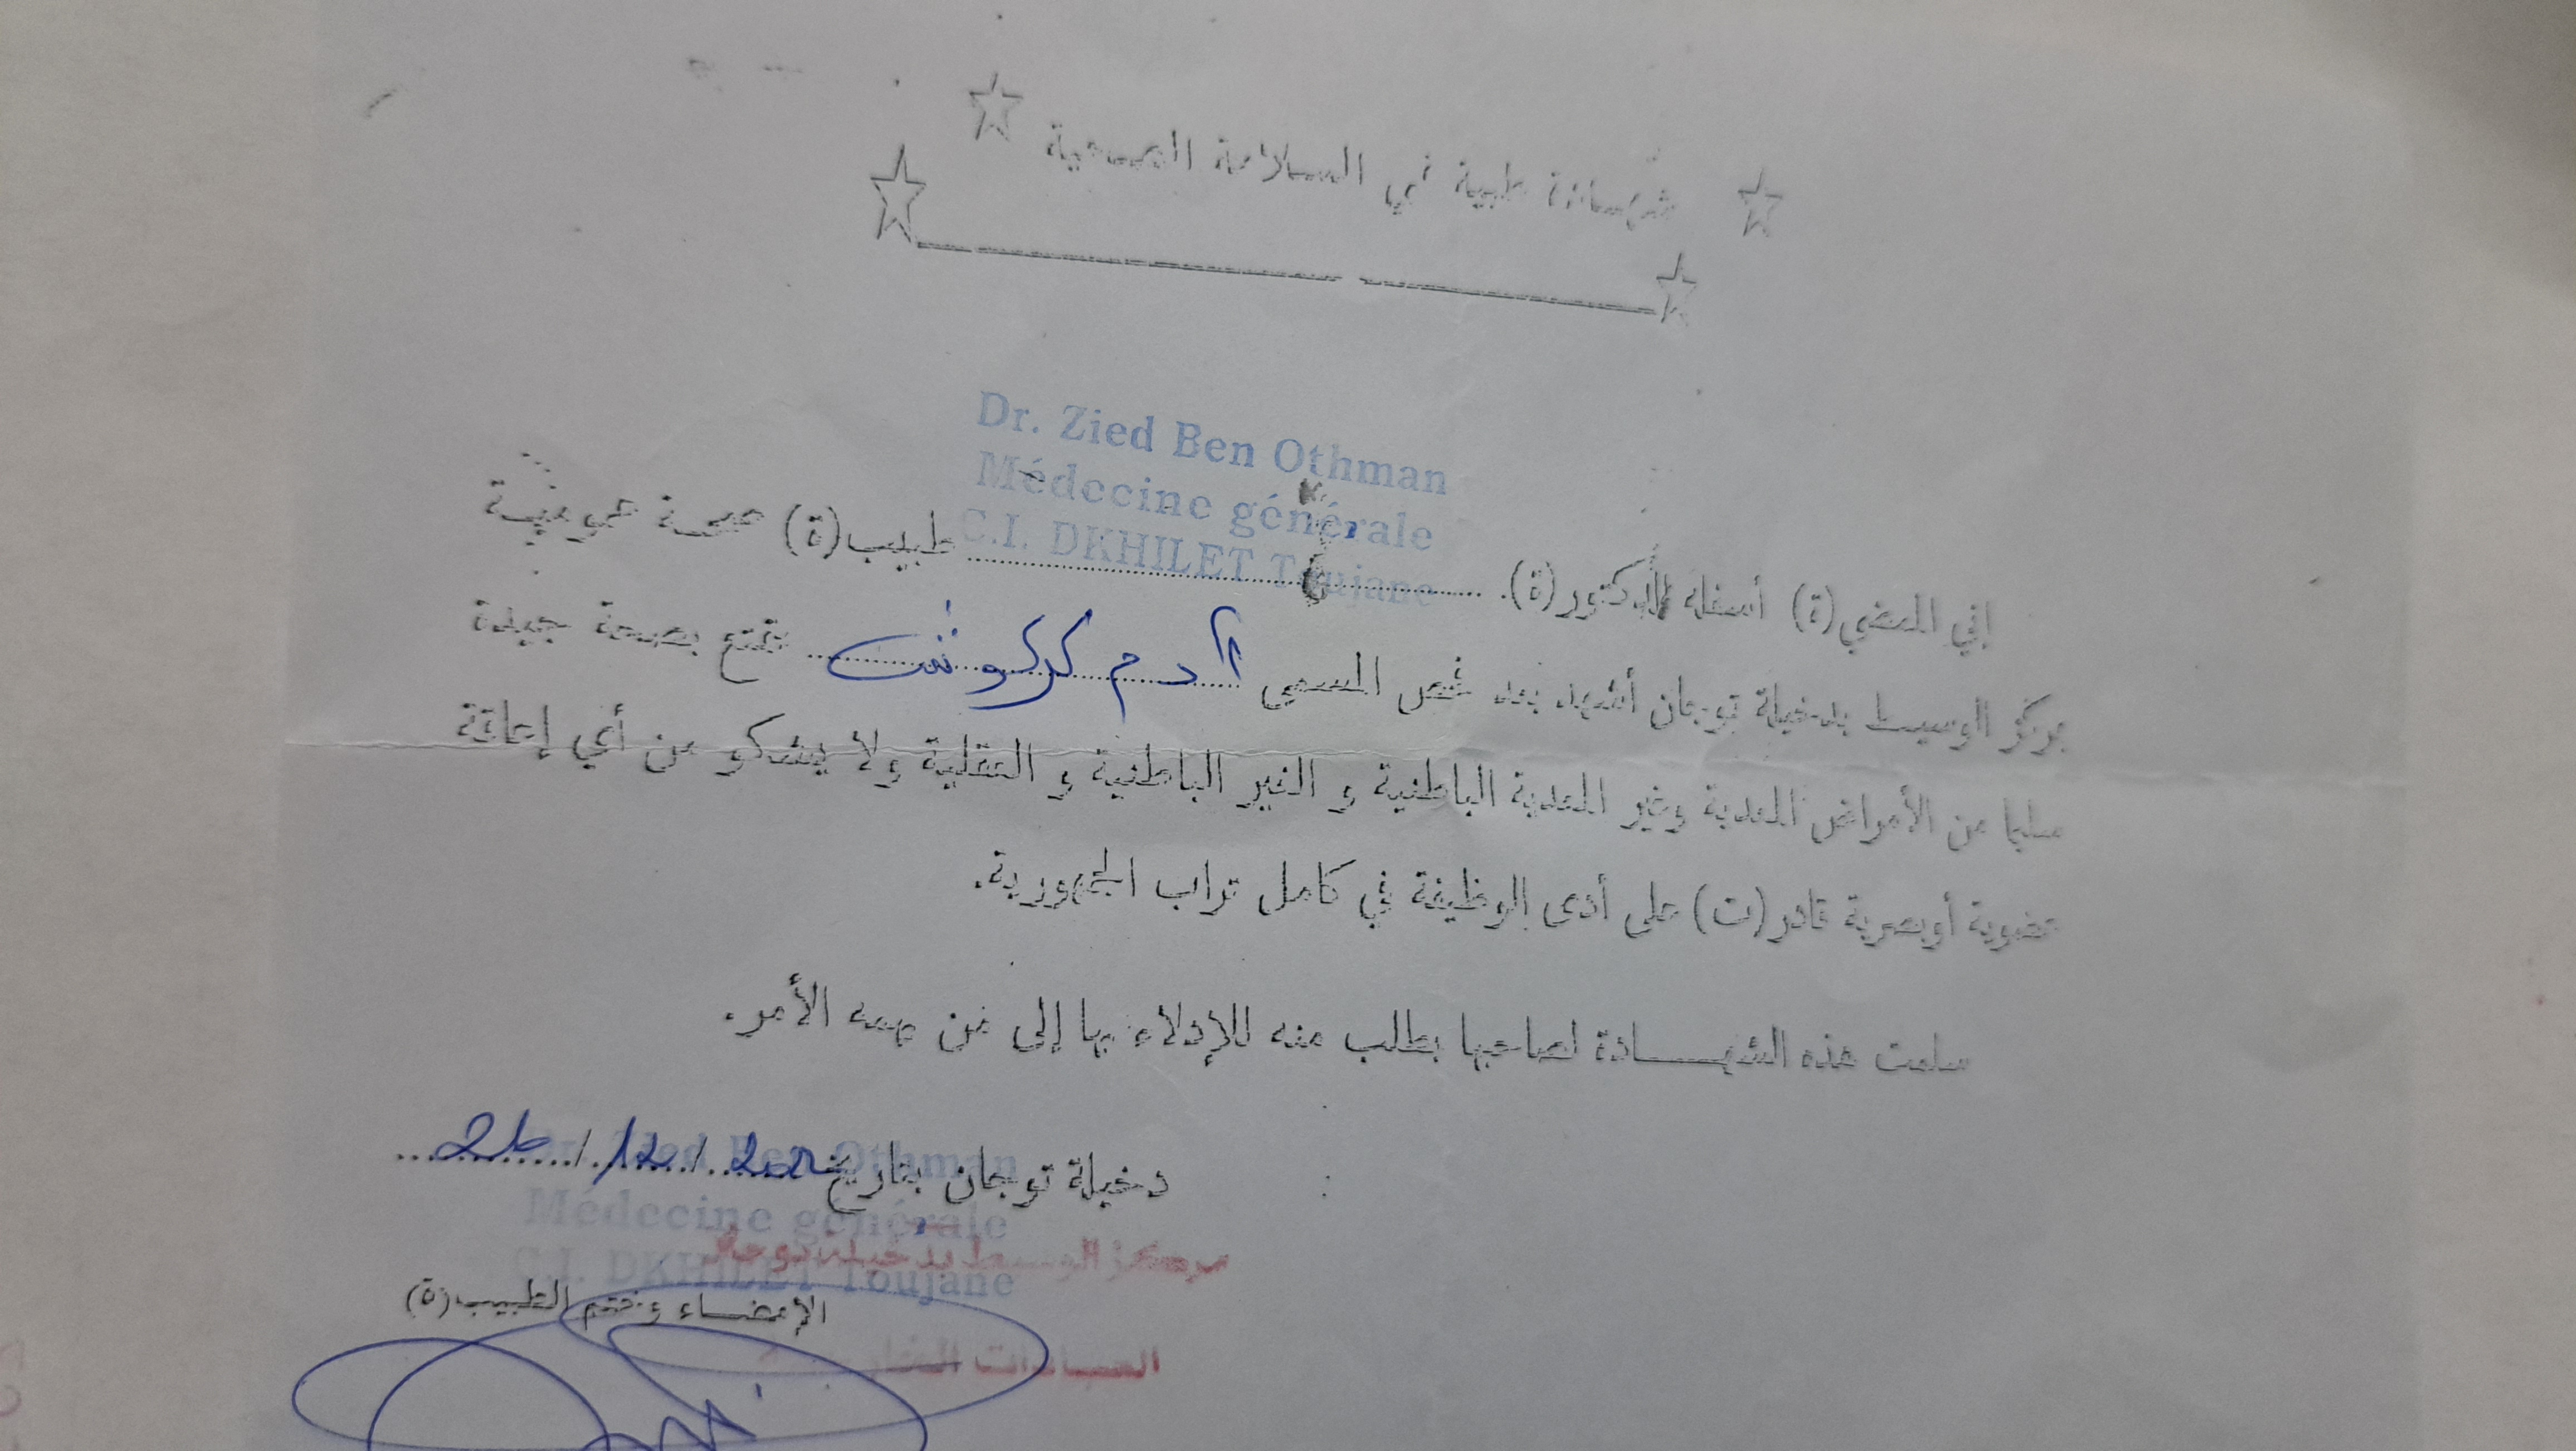 شهادة طبية في السلامة الصحية
Dr. Zied Ben Othman
Médecine générale
C.I. DKHILET Toujane
إني الممضي(ة) أسفله الدكتور(ة). طبيب(ة) صحة عمومية
بمركز الوسيط بدخيلة توجان أشهد بعد فحص المسمى آدم كركوش تمتع بصحة جيدة
سليما من الأمراض المعدية وغير المعدية الباطنية و الغير الباطنية و العقلية ولا يشكو من أي إعاقة
عضوية أوبصرية قادر(ت) على أدى الوظيفة في كامل تراب الجمهورية.
سلمت هذه الشهادة لصاحبها بطلب منه للإدلاء بها إلى من يهمه الأمر.
دخيلة توجان بتاريخ /12/
Dr. Zied Ben Othman
Médecine générale
مركز الوسيط بدخيلة توجان
C.I. DKHILET Toujane
الإمضاء وختم الطبيب(ة)
العيادات الخارجية